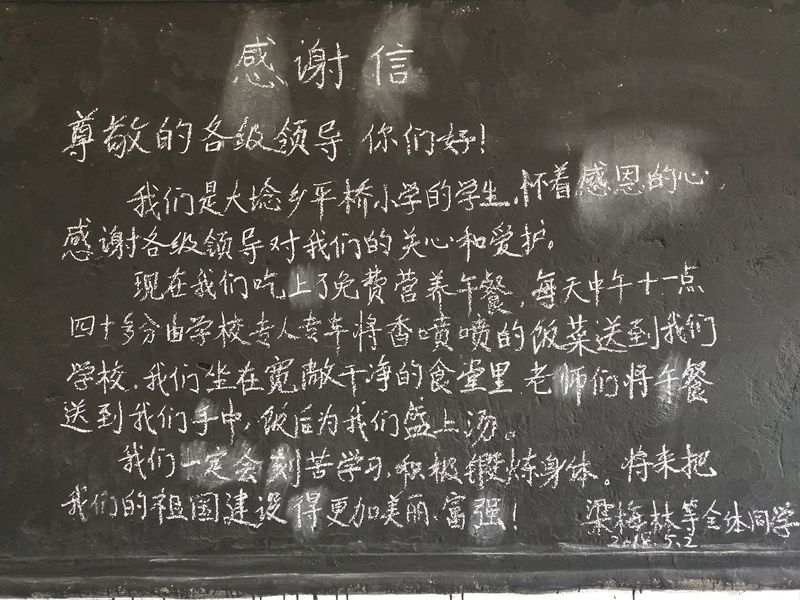 感谢信
尊敬的各级领导 你们好！
我们是大埝乡平桥小学的学生，怀着感恩的心，
感谢各级领导对我们的关心和爱护。
现在我们吃上了免费营养午餐，每天中午十一点
四十多分由学校专人专车将香喷喷的饭菜送到我们
学校，我们坐在宽敞干净的食堂里 老师们将午餐
送到我们手中，饭后为我们盛上汤。
我们一定会刻苦学习，积极锻炼身体。将来把
我们的祖国建设得更加美丽、富强！
梁梅林等全体同学
5.2